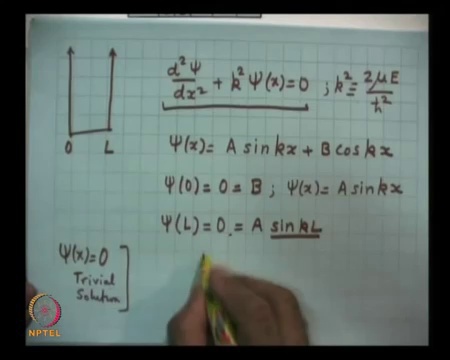 d²Ψ/dx² + k²Ψ(x)=0 ; k² = 2μE/ħ²
0 L
Ψ(x)= A sinkx + B coskx
Ψ(0)=0=B ; Ψ(x)= A sinkx
Ψ(L)=0.= A sinkL
Ψ(x)=0
Trivial
Solution
NPTEL